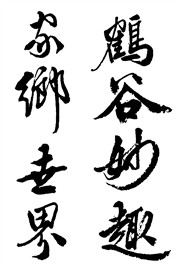 鶴谷妙趣
家鄉世界